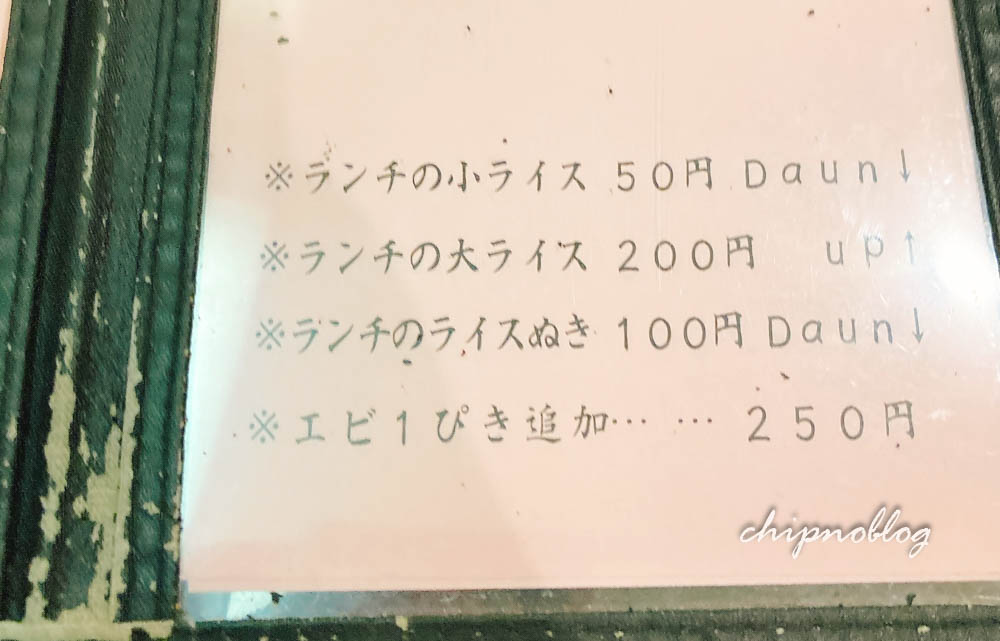 ※ランチの小ライス 50円 Daun↓
※ランチの大ライス 200円 up↑
※ランチのライスぬき 100円 Daun↓
※エビ1ぴき追加… … 250円
chipnoblog